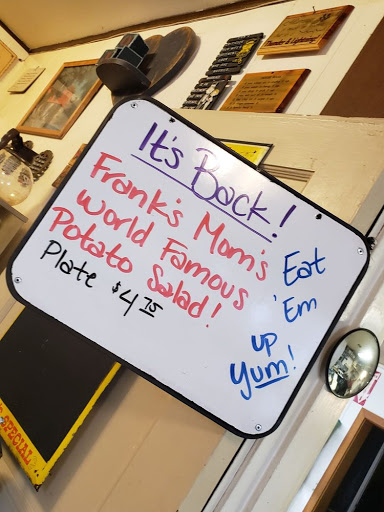 It's Back!
Frank's Mom's
World Famous
Potato Salad!
Plate $4.75
Eat
'Em
up
Yum!
SPECIAL